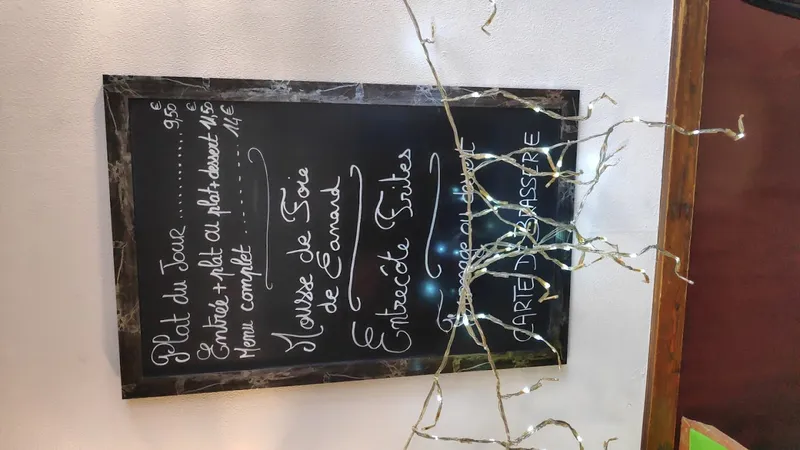 Plat du Jour ............ 9,50 €
Entrée + plat ou plat + dessert 11,50 €
Menu complet .......... 14 €
Mousse de Foie
de Canard
Entrecôte Frites
Fromage ou dessert
CARTE DE BRASSERIE